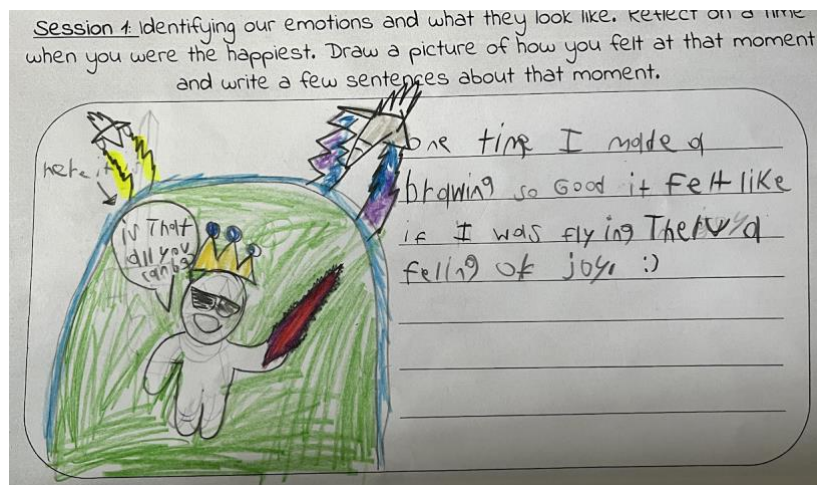 Session 1: Identifying our emotions and what they look like. Reflect on a time
when you were the happiest. Draw a picture of how you felt at that moment
and write a few sentences about that moment.
here
is That
all you
one time I made a
brawing so Good it Felt like
if I was flying The
a
feling of joy, :)